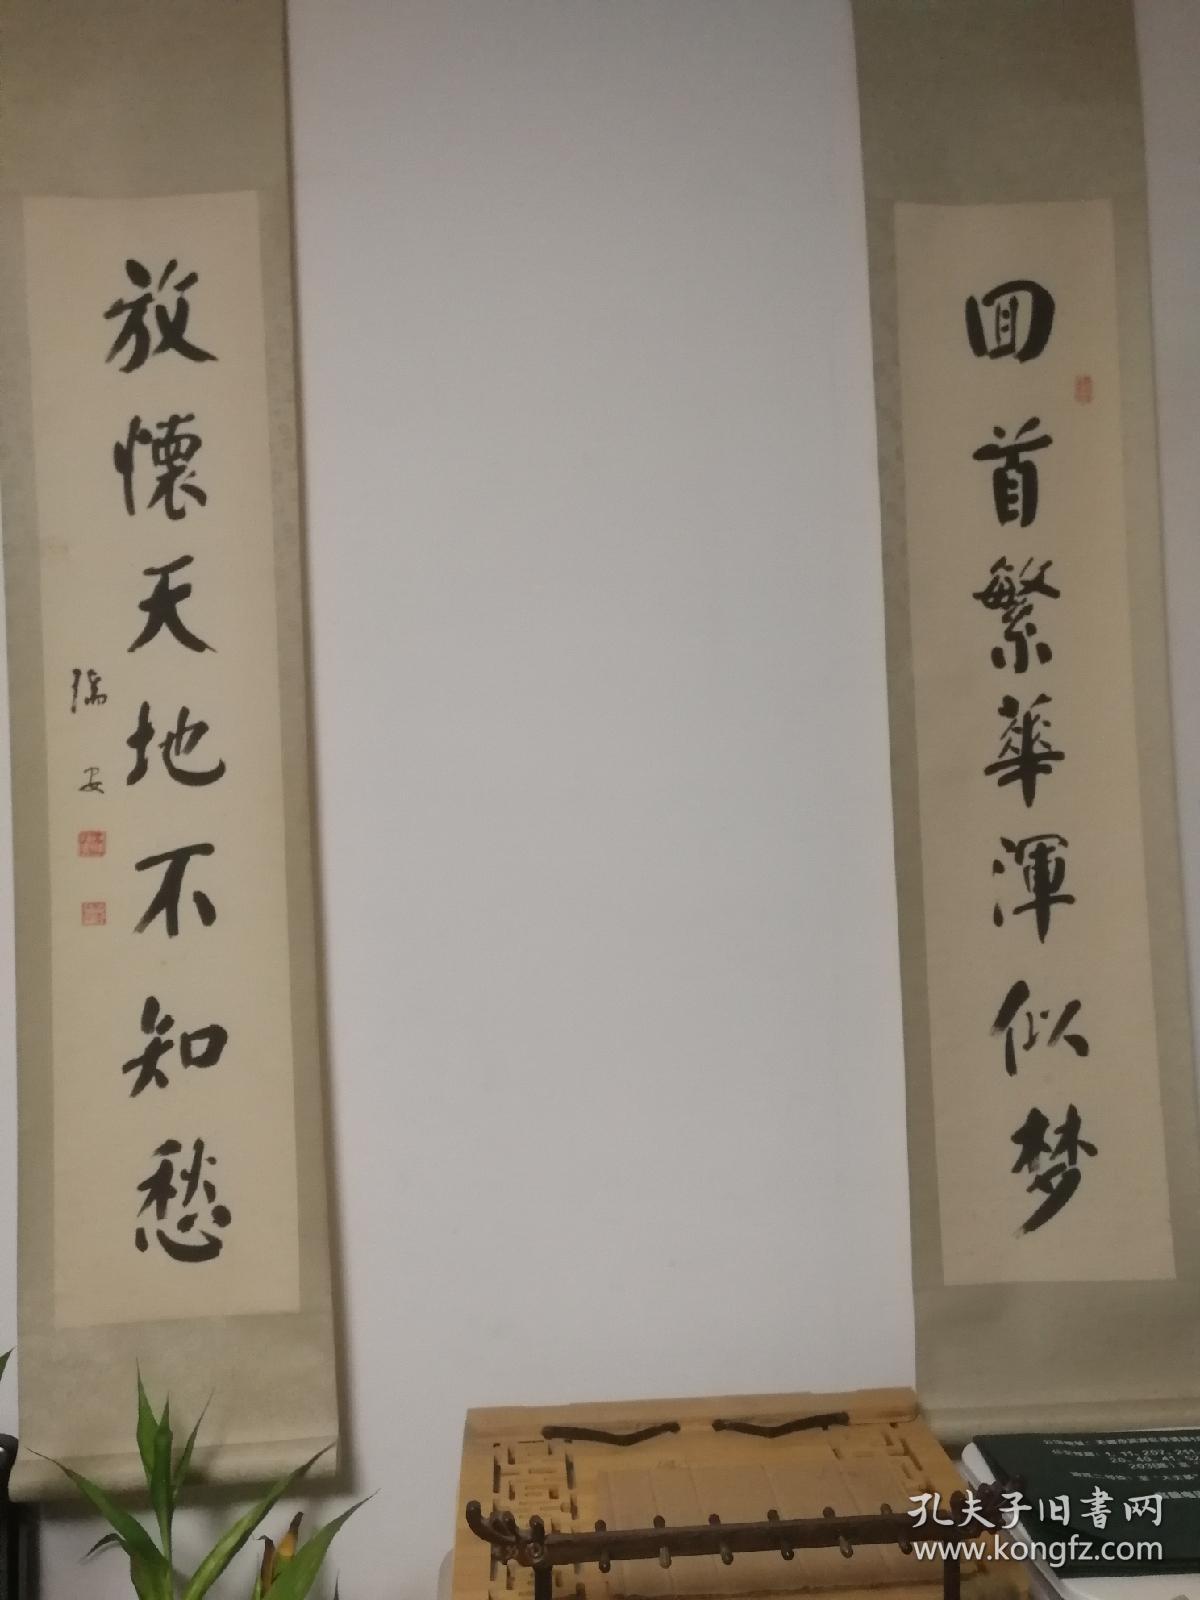 回首繁華渾似梦
放懷天地不知愁
孔夫子旧書网
www.kongfz.com